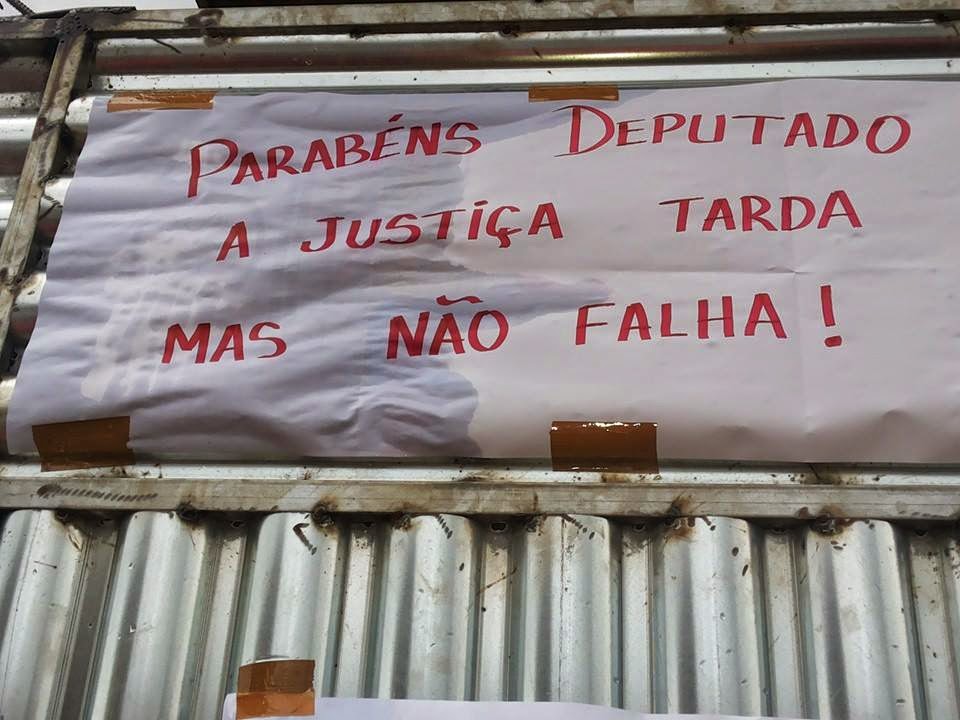 PARABÉNS DEPUTADO
A JUSTIÇA TARDA
MAS NÃO FALHA!